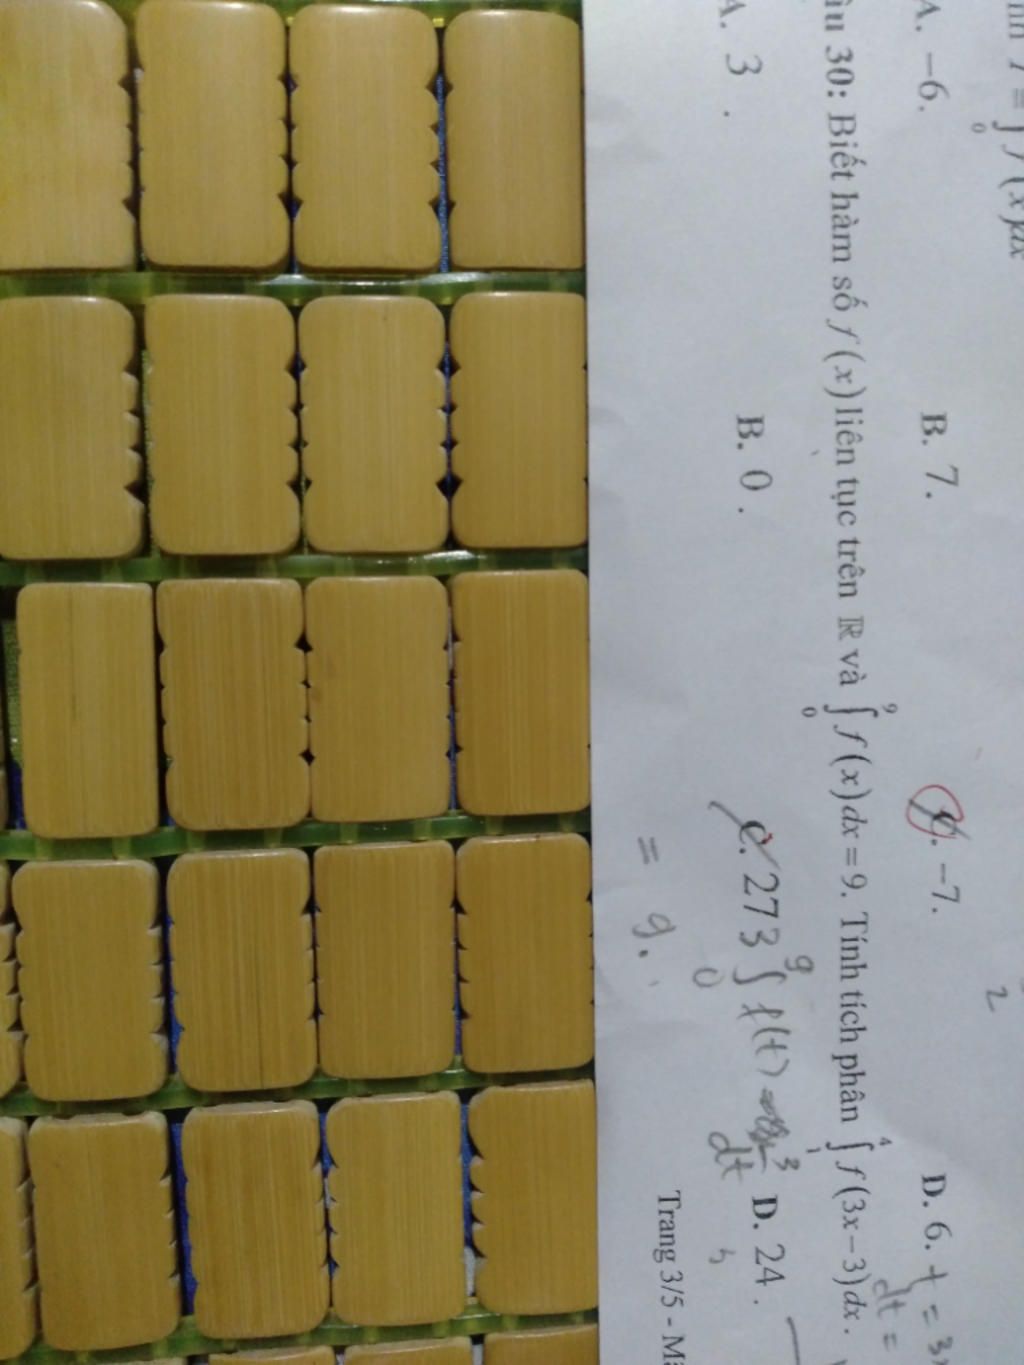 I = ∫₀ f(x)dx
2
A. −6. B. 7. C. −7. D. 6. t = 3
dt =
Câu 30: Biết hàm số f(x) liên tục trên ℝ và ∫₀⁹ f(x)dx = 9. Tính tích phân ∫₁⁴ f(3x−3)dx.
A. 3 . B. 0 . C. 27 D. 24 .
3 ∫₀⁹ f(t) dt
= 9.
Trang 3/5 - Mã